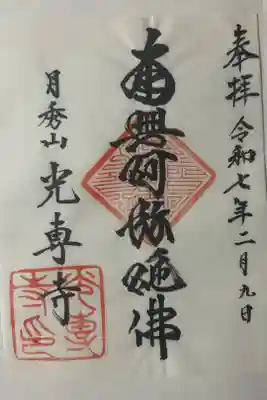 奉拝 令和七年二月九日
南無阿弥陀佛
月秀山 光専寺
光専寺印